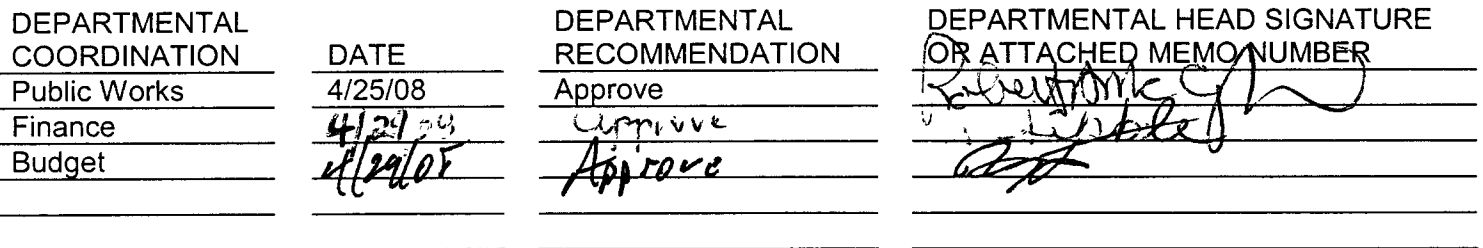 DEPARTMENTAL COORDINATION DATE DEPARTMENTAL RECOMMENDATION DEPARTMENTAL HEAD SIGNATURE OR ATTACHED MEMO NUMBER
Public Works 4/25/08 Approve
Finance Approve
Budget 4/29/08 Approve